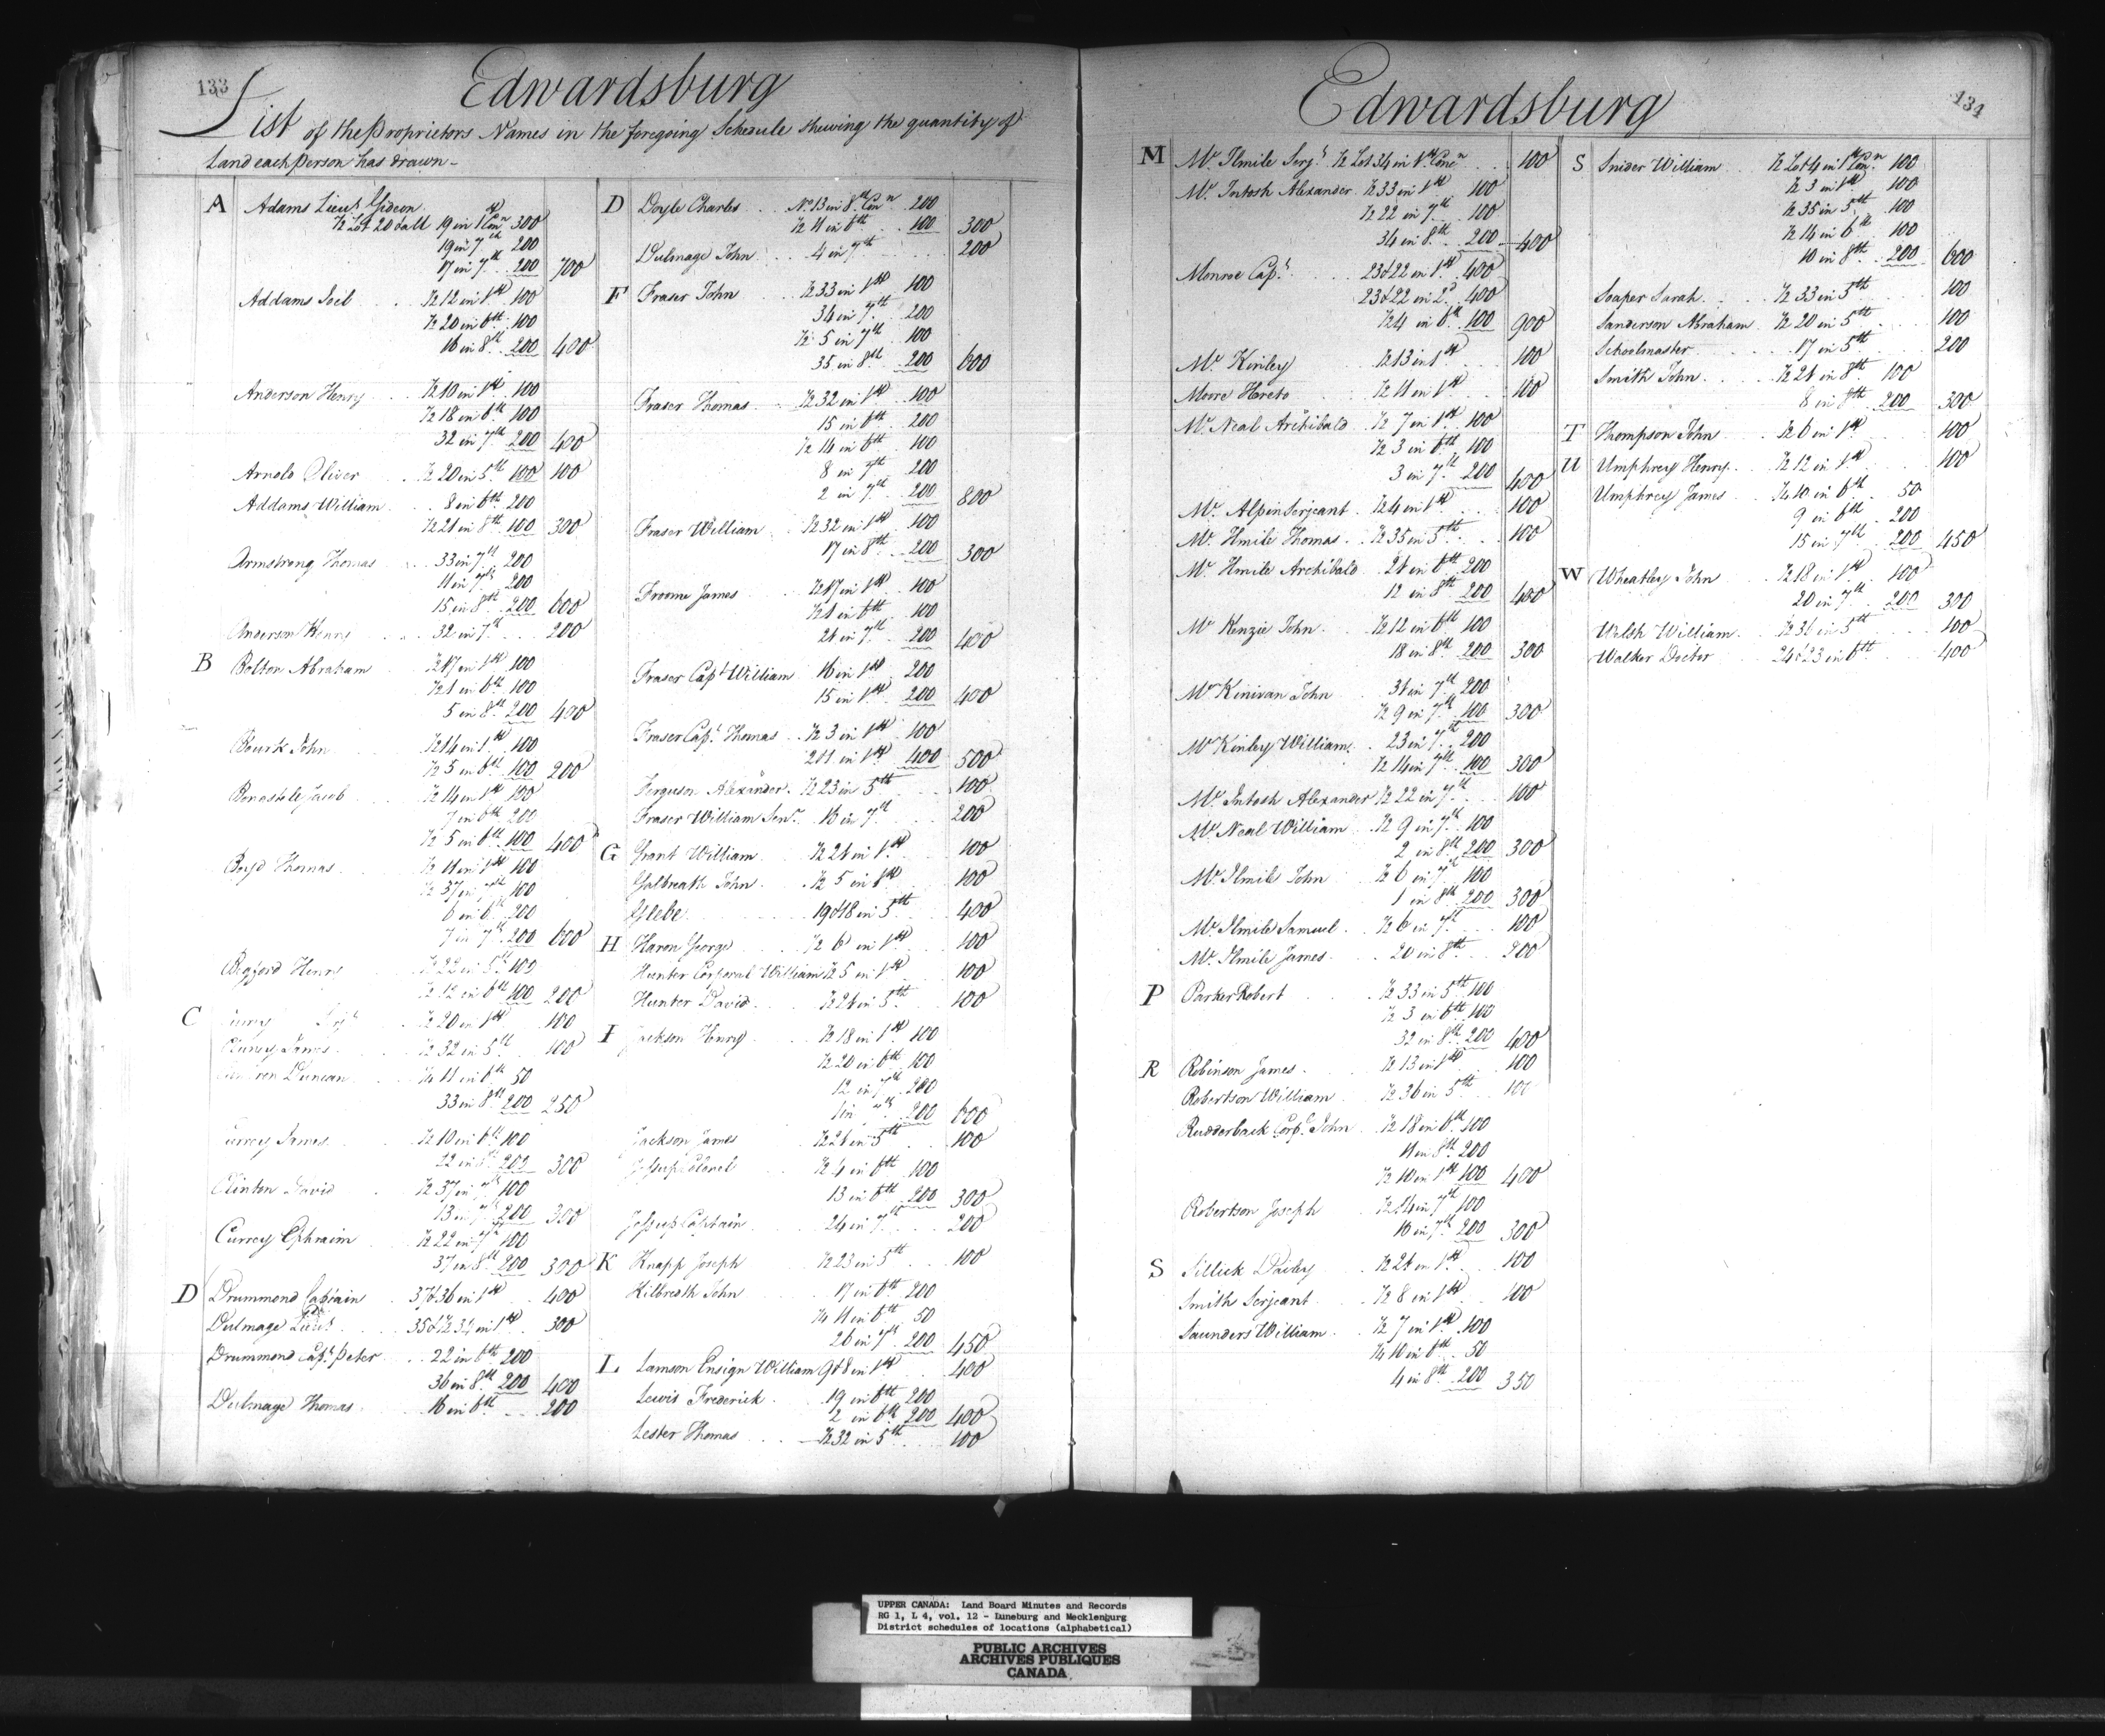 133
Edwardsburg
List of the Proprietors Names in the foregoing Schedule shewing the quantity of
Land each person has drawn -
A Adams Lieut. Gideon
½ Lot 20 & all 19 in 1st Con.n 300
19 in 7th 200
17 in 7th 200 700
Addams Joel ½ 12 in 1st 100
½ 20 in 6th 100
16 in 8th 200 400
Anderson Henry ½ 10 in 1st 100
½ 18 in 6th 100
32 in 7th 200 400
Arnold Oliver ½ 20 in 5th 100 100
Addams William 8 in 6th 200
½ 21 in 8th 100 300
Armstrong Thomas 33 in 7th 200
11 in 7th 200
15 in 8th 200 600
Anderson Henry 32 in 7th 200
B Bolton Abraham ½ 17 in 1st 100
½ 1 in 6th 100
5 in 8th 200 400
Bourk John ½ 14 in 1st 100
½ 5 in 6th 100 200
Jacob ½ 14 in 1st 100
7 in 6th 200
½ 5 in 6th 100 400
Boyd Thomas ½ 11 in 1st 100
½ 37 in 7th 100
6 in 6th 200
7 in 7th 200 600
Henry ½ 22 in 5th 100
½ 12 in 6th 100 200
C ½ 20 in 1st 100
James ½ 32 in 5th 100
Duncan ¼ 11 in 6th 50
33 in 8th 200 250
James ½ 10 in 6th 100
22 in 8th 200 300
Clinton David ½ 37 in 7th 100
13 in 7th 200 300
Currey Ephraim ½ 22 in 7th 100
37 in 8th 200 300
D Drummond Captain 37 & 36 in 1st 400
Dulmage Lieut. 35 & ½ 34 in 1st 300
Drummond Capt. Peter 22 in 6th 200
36 in 8th 200 400
Dulmage Thomas 16 in 6th 200
D Doyle Charles No. 13 in 8th Con.n 200
½ 11 in 6th 100 300
Dulmage John 4 in 7th 200
F Fraser John ½ 33 in 1st 100
34 in 7th 200
½ 5 in 7th 100
35 in 8th 200 600
Fraser Thomas ½ 32 in 1st 100
15 in 6th 200
½ 14 in 6th 100
8 in 7th 200
2 in 7th 200 800
Fraser William ½ 32 in 1st 100
17 in 8th 200 300
Froome James ½ 17 in 1st 100
½ 1 in 6th 100
21 in 7th 200 400
Fraser Capt William 16 in 1st 200
15 in 1st 200 400
Fraser Capt. Thomas ½ 3 in 1st 100
2 & 1 in 1st 400 500
Ferguson Alexander ½ 23 in 5th 100
Fraser William Senr. 16 in 7th 200
G Grant William ½ 21 in 1st 100
Galbreath John ½ 5 in 1st 100
Glebe 19 & 18 in 5th 400
H Haron George ½ 6 in 1st 100
Hunter Corporal William ½ 5 in 1st 100
Hunter David ½ 21 in 5th 100
I Jackson Henry ½ 18 in 1st 100
½ 20 in 6th 100
12 in 7th 200
1 in 7th 200 600
Jackson James ½ 21 in 5th 100
Jessup Colonel ½ 4 in 6th 100
13 in 6th 200 300
Jessup Captain 24 in 7th 200
K Knapp Joseph ½ 23 in 5th 100
Kilbreath John 17 in 6th 200
¼ 11 in 6th 50
26 in 7th 200 450
L Lamson Ensign William 9 & 8 in 1st 400
Lewis Frederick 19 in 6th 200
2 in 6th 200 400
Lester Thomas ½ 32 in 5th 100
134
Edwardsburg
M Mc. Ilmile Serjt. ½ Lot 34 in 1st Conc.n 100
Mc. Intosh Alexander ½ 33 in 1st 100
½ 22 in 7th 100
34 in 8th 200 400
Monroe Capt. 23 & 22 in 1st 400
23 & 22 in 2d 400
½ 4 in 6th 100 900
Mc. Kinley ½ 13 in 1st 100
Moore ½ 11 in 1st 100
Mc. Neal Archibald ½ 7 in 1st 100
½ 3 in 6th 100
3 in 7th 200 400
Mc. Alpin Serjeant ½ 4 in 1st 100
Mc. Ilmile Thomas ½ 35 in 5th 100
Mc. Ilmile Archibald 21 in 6th 200
12 in 8th 200 400
Mc Kenzie John ½ 12 in 6th 100
18 in 8th 200 300
Mc Kinivan John 31 in 7th 200
½ 9 in 7th 100 300
Mc Kinley William 23 in 7th 200
½ 14 in 7th 100 300
Mc. Intosh Alexander ½ 22 in 7th 100
Mc. Neal William ½ 9 in 7th 100
2 in 8th 200 300
Mc. Ilmile John ½ 6 in 7th 100
1 in 8th 200 300
Mc. Ilmile Samuel ½ 6 in 7th 100
Mc. Ilmile James 20 in 8th 200
P Parker Robert ½ 33 in 5th 100
½ 3 in 6th 100
32 in 8th 200 400
R Robinson James ½ 13 in 1st 100
Robertson William ½ 36 in 5th 100
Rudderback Corpl. John ½ 18 in 6th 100
11 in 8th 200
½ 10 in 1st 100 400
Robertson Joseph ½ 14 in 7th 100
10 in 7th 200 300
S Sillick Dailey ½ 21 in 1st 100
Smith Serjeant ½ 8 in 1st 100
Saunders William ½ 7 in 1st 100
¼ 10 in 6th 50
4 in 8th 200 350
S Snider William ½ Lot 4 in 1st Con.n 100
½ 3 in 1st 100
½ 35 in 5th 100
½ 14 in 6th 100
10 in 8th 200 600
Soaper Sarah ½ 33 in 5th 100
Sanderson Abraham ½ 20 in 5th 100
Schoolmaster 17 in 5th 200
Smith John ½ 21 in 8th 100
8 in 8th 200 300
T Thompson John ½ 6 in 1st 100
U Umphrey Henry ½ 12 in 1st 100
Umphrey James ¼ 10 in 6th 50
9 in 6th 200
15 in 7th 200 450
W Wheatley John ½ 18 in 1st 100
20 in 7th 200 300
Welsh William ½ 36 in 5th 100
Walker Doctor 24 & 23 in 6th 400
UPPER CANADA: Land Board Minutes and Records
RG 1, L 4, vol. 12 - Luneburg and Mecklenburg
District schedules of locations (alphabetical)
PUBLIC ARCHIVES
ARCHIVES PUBLIQUES
CANADA